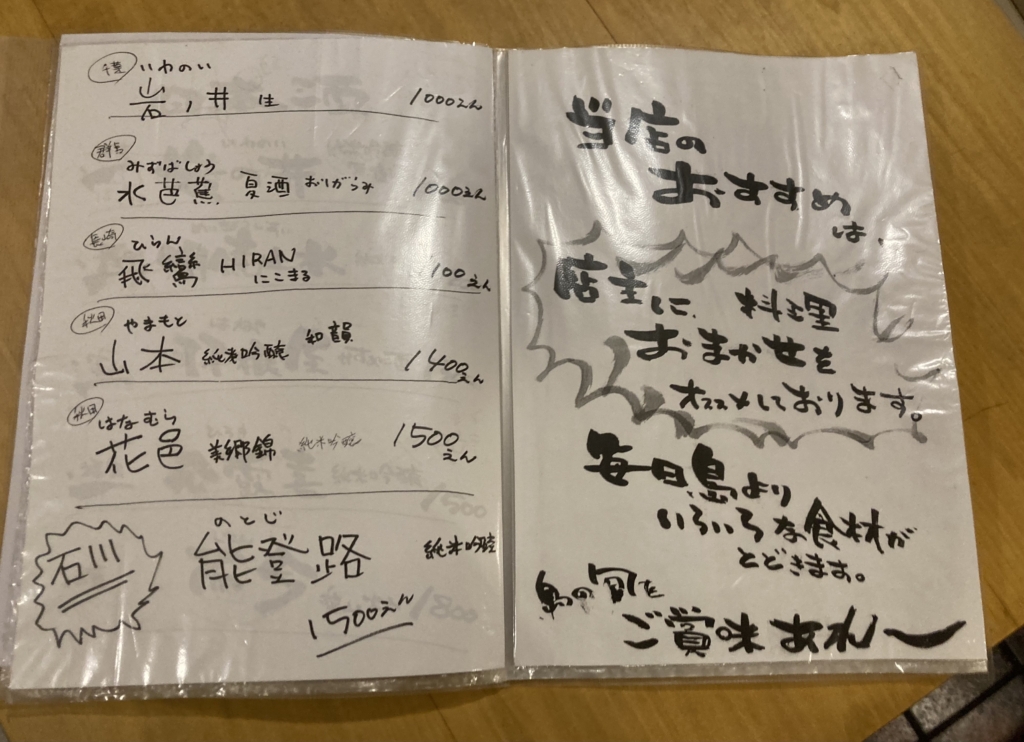 千葉 いわのい
岩ノ井 生 1000えん
群馬
みずばしょう
水芭蕉 夏酒 おりがらみ 1000えん
長崎
ひらん
飛鸞 HIRAN
にこまる 1100えん
秋田 やまもと
山本 純米吟醸 和韻 1400えん
秋田
はなむら
花邑 美郷錦 純米吟醸 1500えん
石川
のとじ
能登路 純米吟醸
1500えん
当店の
おすすめ
は、
店主に 料理
おまかせを
オススメしております。
毎日島より
いろいろな食材が
とどきます。
島の旬を
ご賞味あれ〜